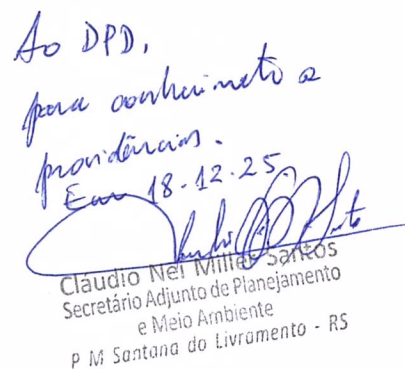 Ao DPD,
para conhecimento e
providências.
Em 18.12.25
Cláudio Nei Milles Santos
Secretário Adjunto de Planejamento
e Meio Ambiente
P M Santana do Livramento - RS